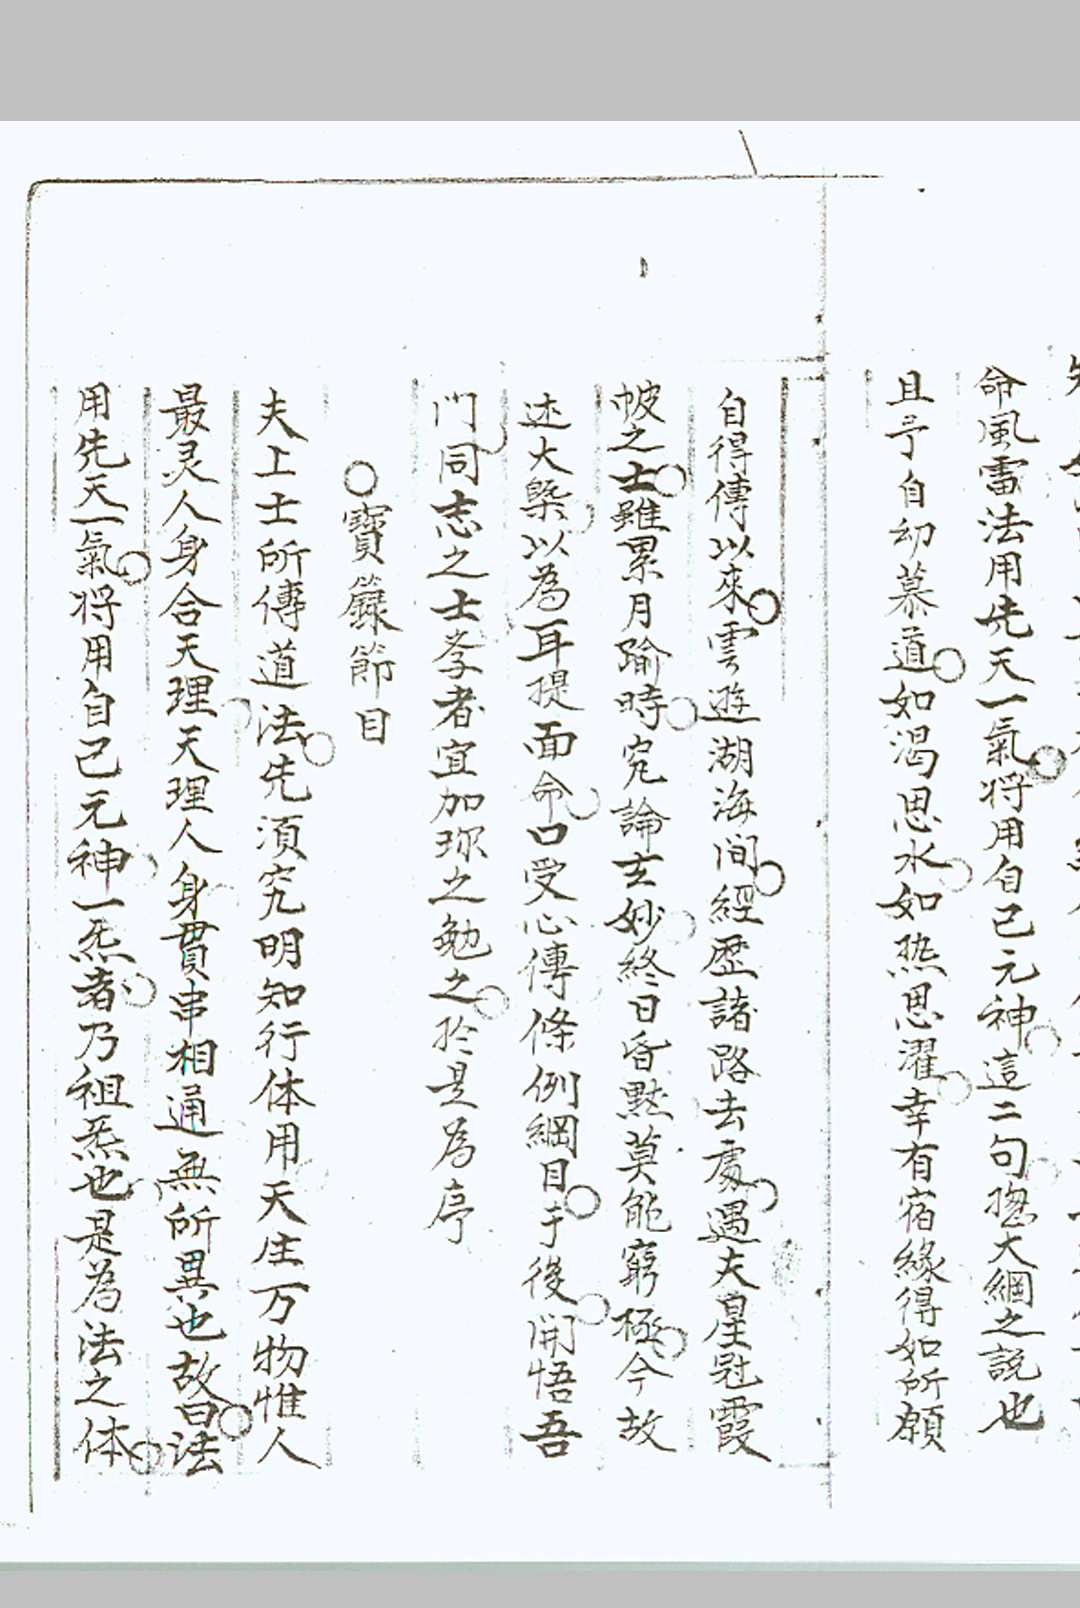 命風雷法用先天一氣将用自己元神這二句揔大綱之説也
且予自幼慕道如渴思水如热思濯幸有宿緣得如所願
自得傳以來雲遊湖海间經歷諸路去處遇夫星冠霞
帔之士雖累月踰時究論玄妙終日昏黙莫能窮極今故
述大槩以為耳提面命口受心傳條例綱目于後開悟吾
門同志之士孝者宜加珎之勉之於是為序
○寳籙節目
夫上士所傳道法先須究明知行体用天生万物惟人
最灵人身合天理天理人身貫串相通無所異也故曰法
用先天一氣将用自己元神一炁者乃祖炁也是為法之体